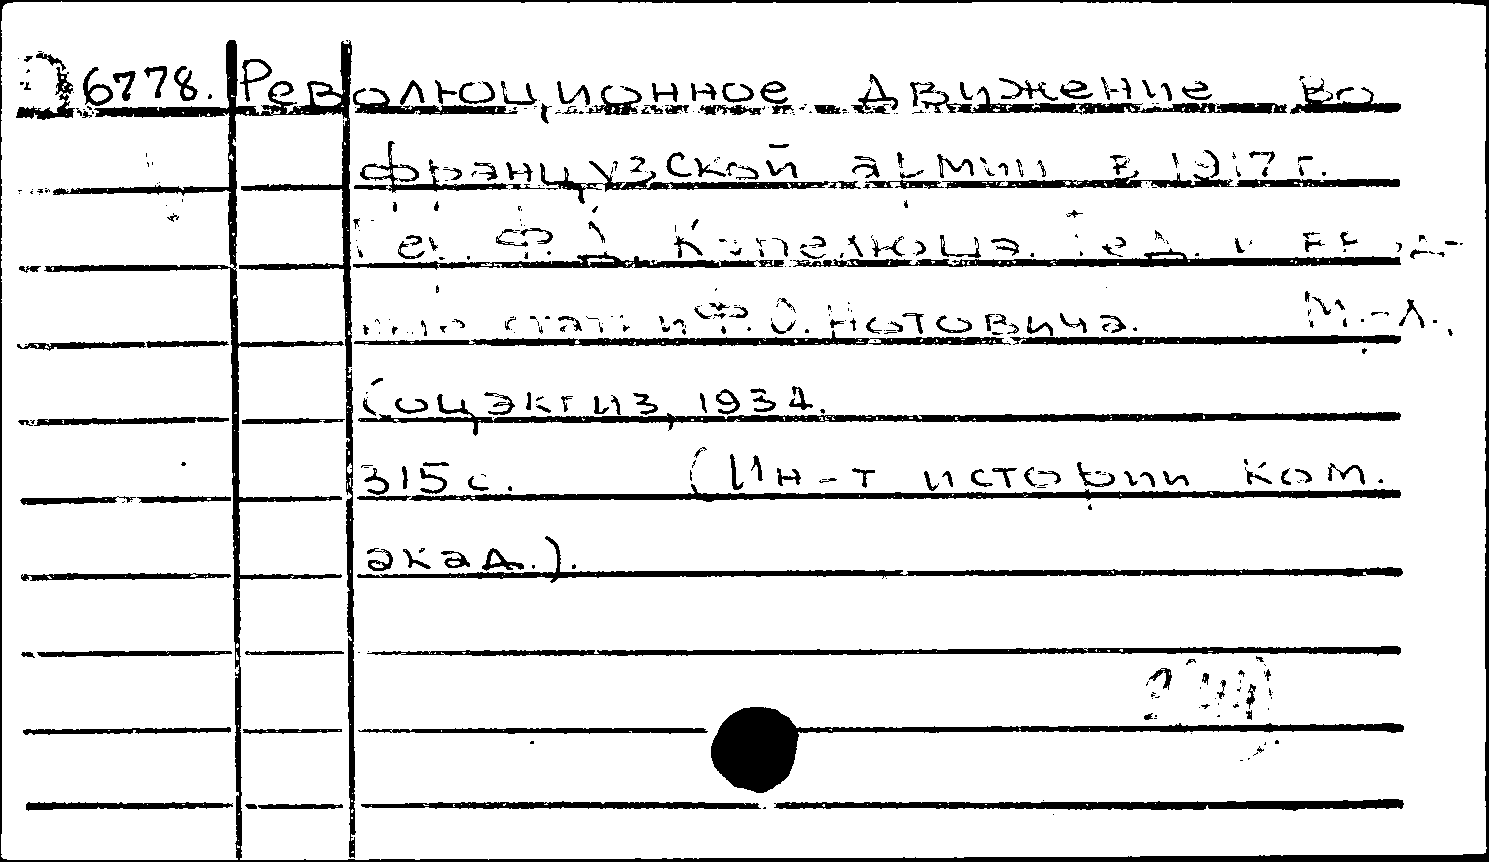 6778. Революционное движение во
французской армии в 1917 г.
Пер. Ф. Д. Капелюша. Ред. и ввод-
ная статья Ф. О. Нотовича. М.-Л.,
Соцэкгиз, 1934.
315 с. (Ин-т истории ком.
акад.).